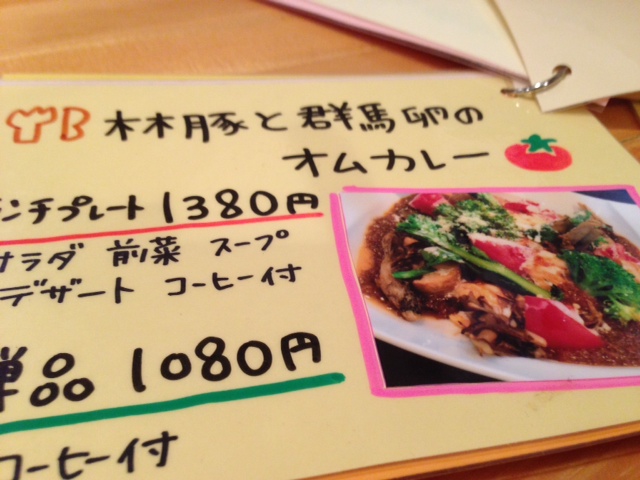 林豚と群馬卵の
オムカレー
ンチプレート 1380円
サラダ 前菜 スープ
デザート コーヒー付
単品 1080円
コーヒー付